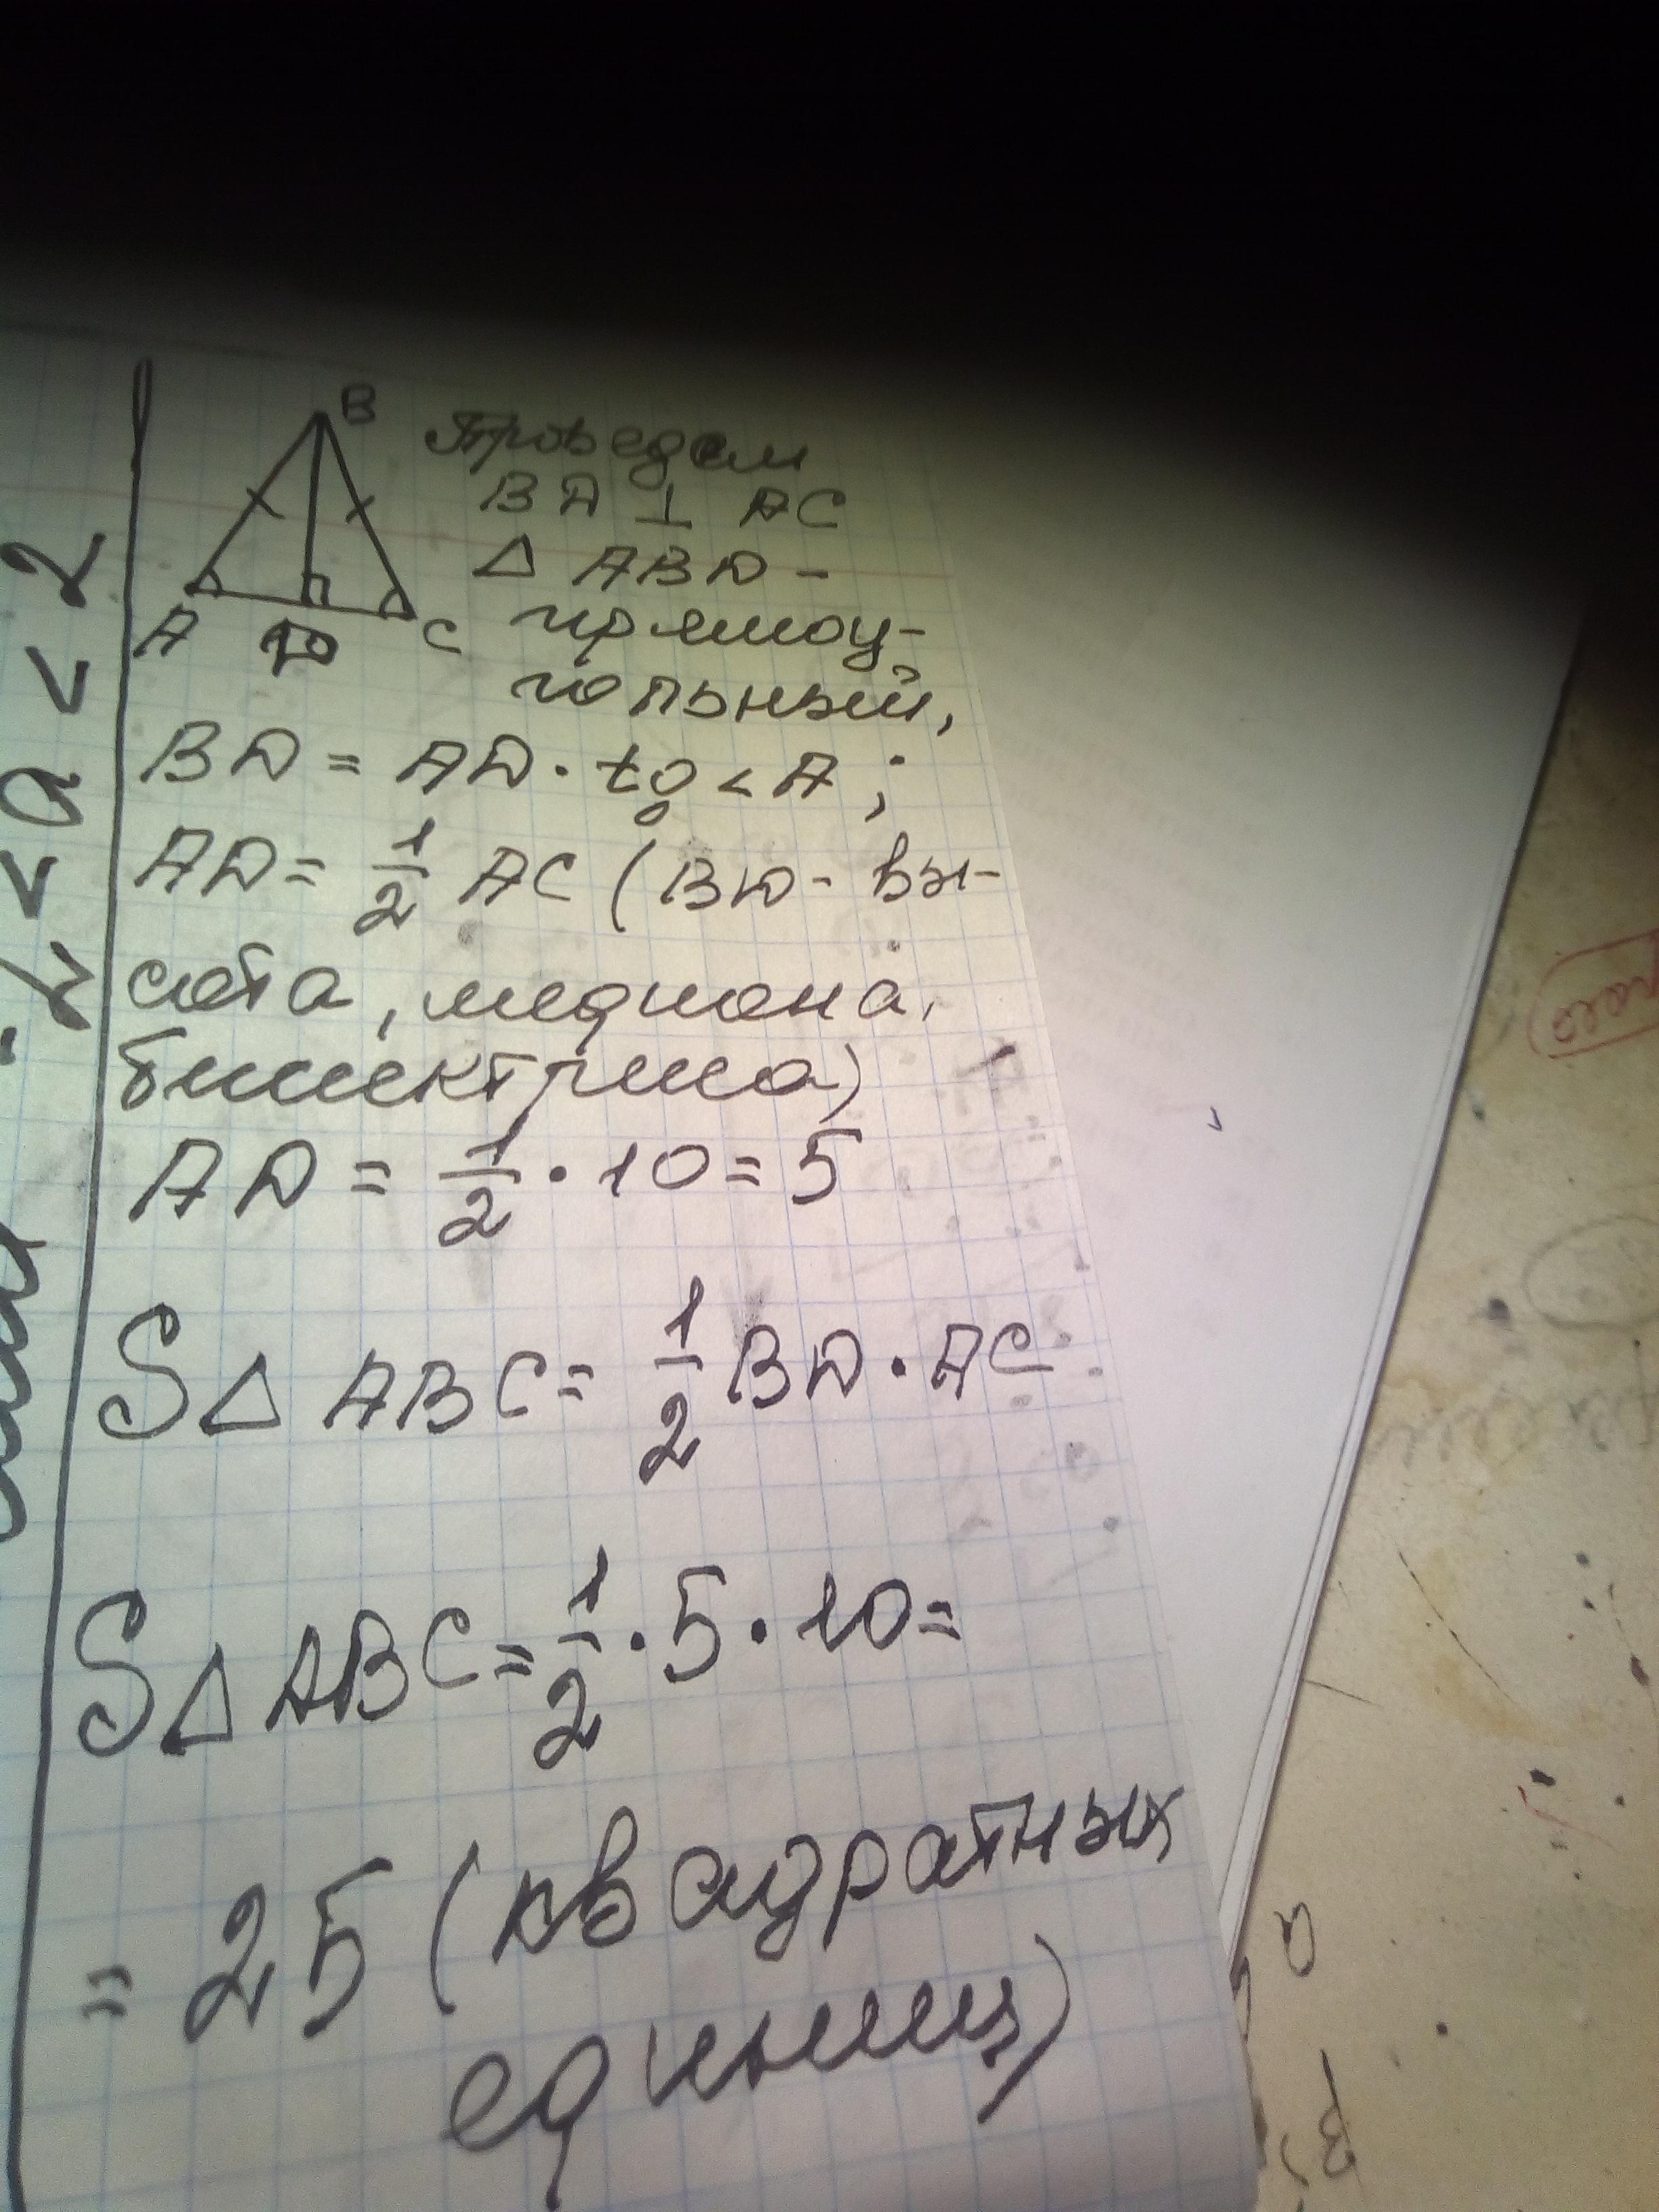 B
A D C
Проведем
BD ⊥ AC
△ ABD -
прямоу-
гольный,
BD = AD · tg ∠A ;
AD = 1/2 AC (BD - вы-
сота, медиана,
биссектриса)
AD = 1/2 · 10 = 5
S△ ABC = 1/2 BD · AC
S△ ABC = 1/2 · 5 · 10 =
= 25 (квадратных
единиц)
< a < 2